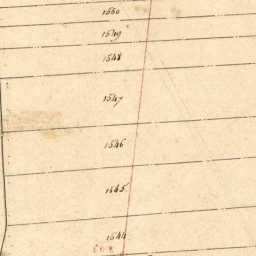 1550
1549
1548
1547
1546
1545
1544